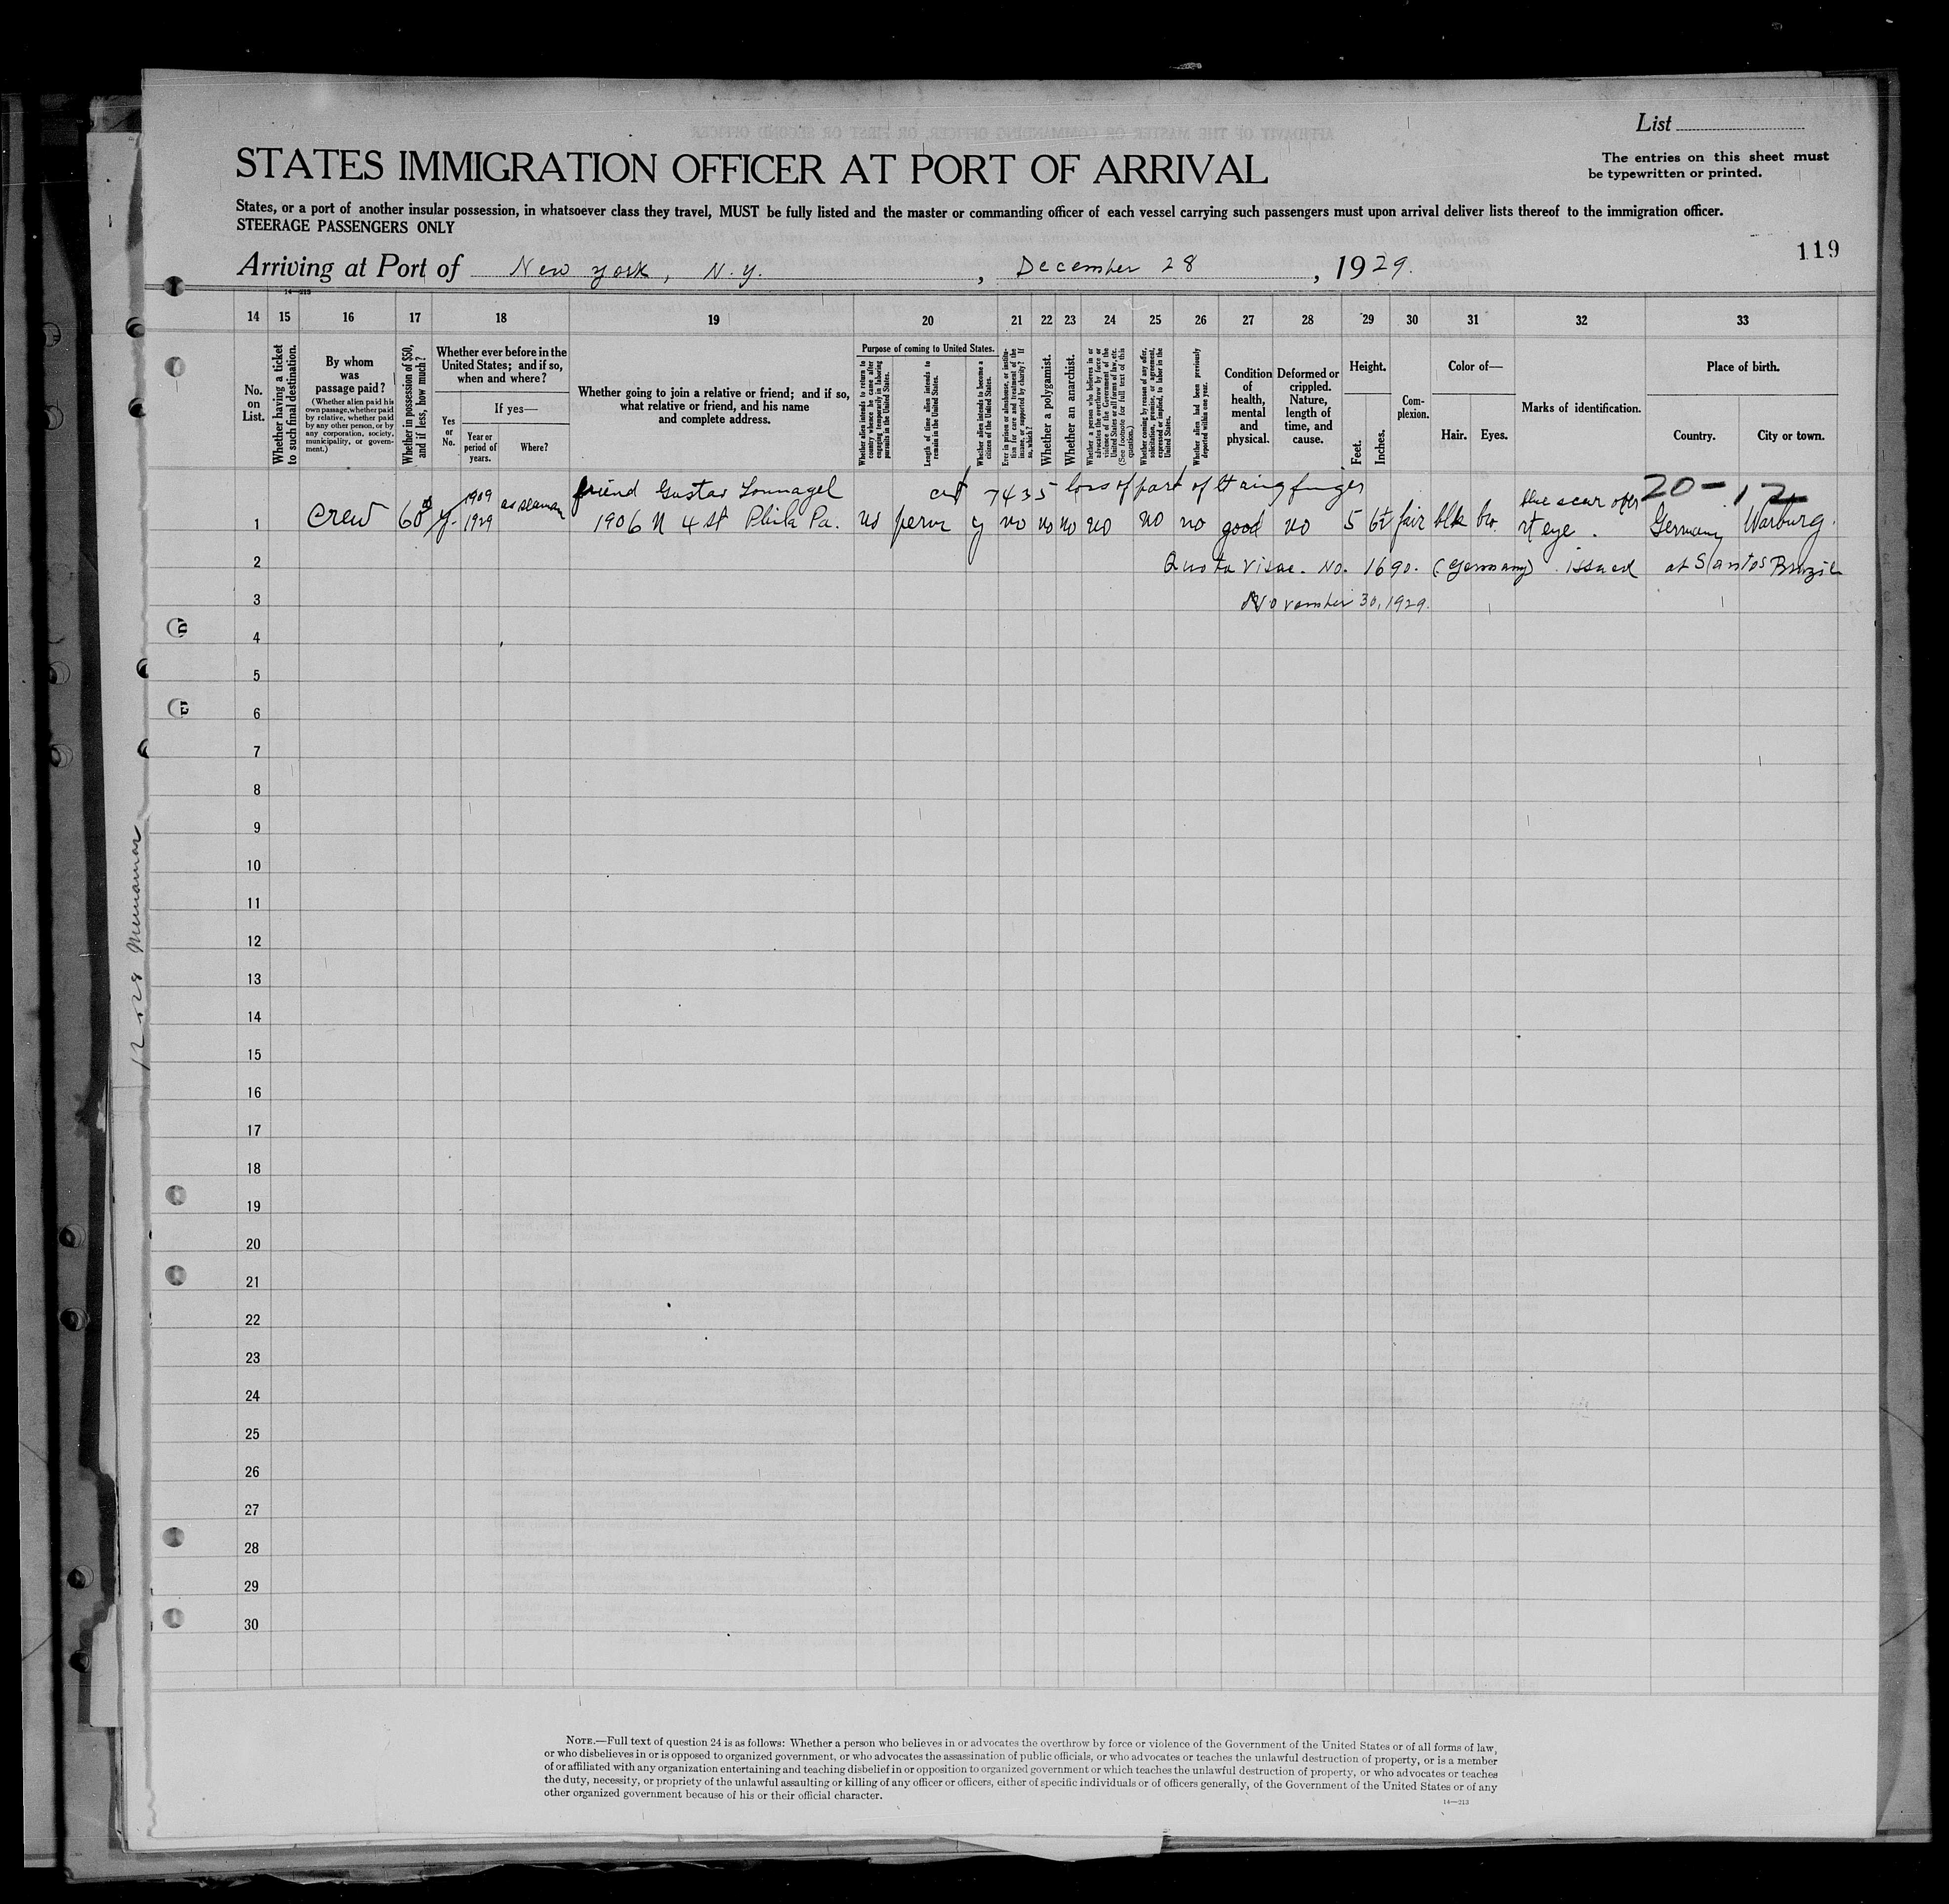 List
The entries on this sheet must
be typewritten or printed.
STATES IMMIGRATION OFFICER AT PORT OF ARRIVAL
States, or a port of another insular possession, in whatsoever class they travel, MUST be fully listed and the master or commanding officer of each vessel carrying such passengers must upon arrival deliver lists thereof to the immigration officer.
STEERAGE PASSENGERS ONLY
119
Arriving at Port of New York, N.Y. , December 28 , 1929.
14—213
14 15 16 17 18 19 20 21 22 23 24 25 26 27 28 29 30 31 32 33
No.
on
List.
Whether having a ticket
to such final destination.
By whom
was
passage paid?
(Whether alien paid his
own passage, whether paid
by relative, whether paid
by any other person, or by
any corporation, society,
municipality, or govern-
ment.)
Whether in possession of $50,
and if less, how much?
Whether ever before in the
United States; and if so,
when and where?
Yes
or
No.
If yes—
Year or
period of
years.
Where?
Whether going to join a relative or friend; and if so,
what relative or friend, and his name
and complete address.
Purpose of coming to United States.
Whether alien intends to return to
country whence he came after
engaging temporarily in laboring
pursuits in the United States.
Length of time alien intends to
remain in the United States.
Whether alien intends to become a
citizen of the United States.
Ever in prison or almshouse, or institu-
tion for care and treatment of the
insane, or supported by charity? If
so, which?
Whether a polygamist.
Whether an anarchist.
Whether a person who believes in or
advocates the overthrow by force or
violence of the Government of the
United States or all forms of law, etc.
(See footnote for full text of this
question.)
Whether coming by reason of any offer,
solicitation, promise, or agreement,
expressed or implied, to labor in the
United States.
Whether alien had been previously
deported within one year.
Condition
of
health,
mental
and
physical.
Deformed or
crippled.
Nature,
length of
time, and
cause.
Height.
Feet.
Inches.
Com-
plexion.
Color of—
Hair.
Eyes.
Marks of identification.
Place of birth.
Country.
City or town.
1909 as seaman friend Gustav 7435 loss of part of finger scar over 20-12
1 crew 60 y. 1929 1906 N 4 St Phila Pa. no perm y no no no no no no good no 5 fair blk bro. rt eye. Germany Warburg.
2 Quota Visa. No. 1690. (Germany) issued at Santos Brazil
3 November 30, 1929.
4
5
6
7
8
9
10
11
12
13
14
15
16
17
18
19
20
21
22
23
24
25
26
27
28
29
30
NOTE.—Full text of question 24 is as follows: Whether a person who believes in or advocates the overthrow by force or violence of the Government of the United States or of all forms of law,
or who disbelieves in or is opposed to organized government, or who advocates the assassination of public officials, or who advocates or teaches the unlawful destruction of property, or is a member
of or affiliated with any organization entertaining and teaching disbelief in or opposition to organized government or which teaches the unlawful destruction of property, or who advocates or teaches
the duty, necessity, or propriety of the unlawful assaulting or killing of any officer or officers, either of specific individuals or of officers generally, of the Government of the United States or of any
other organized government because of his or their official character.
14—213